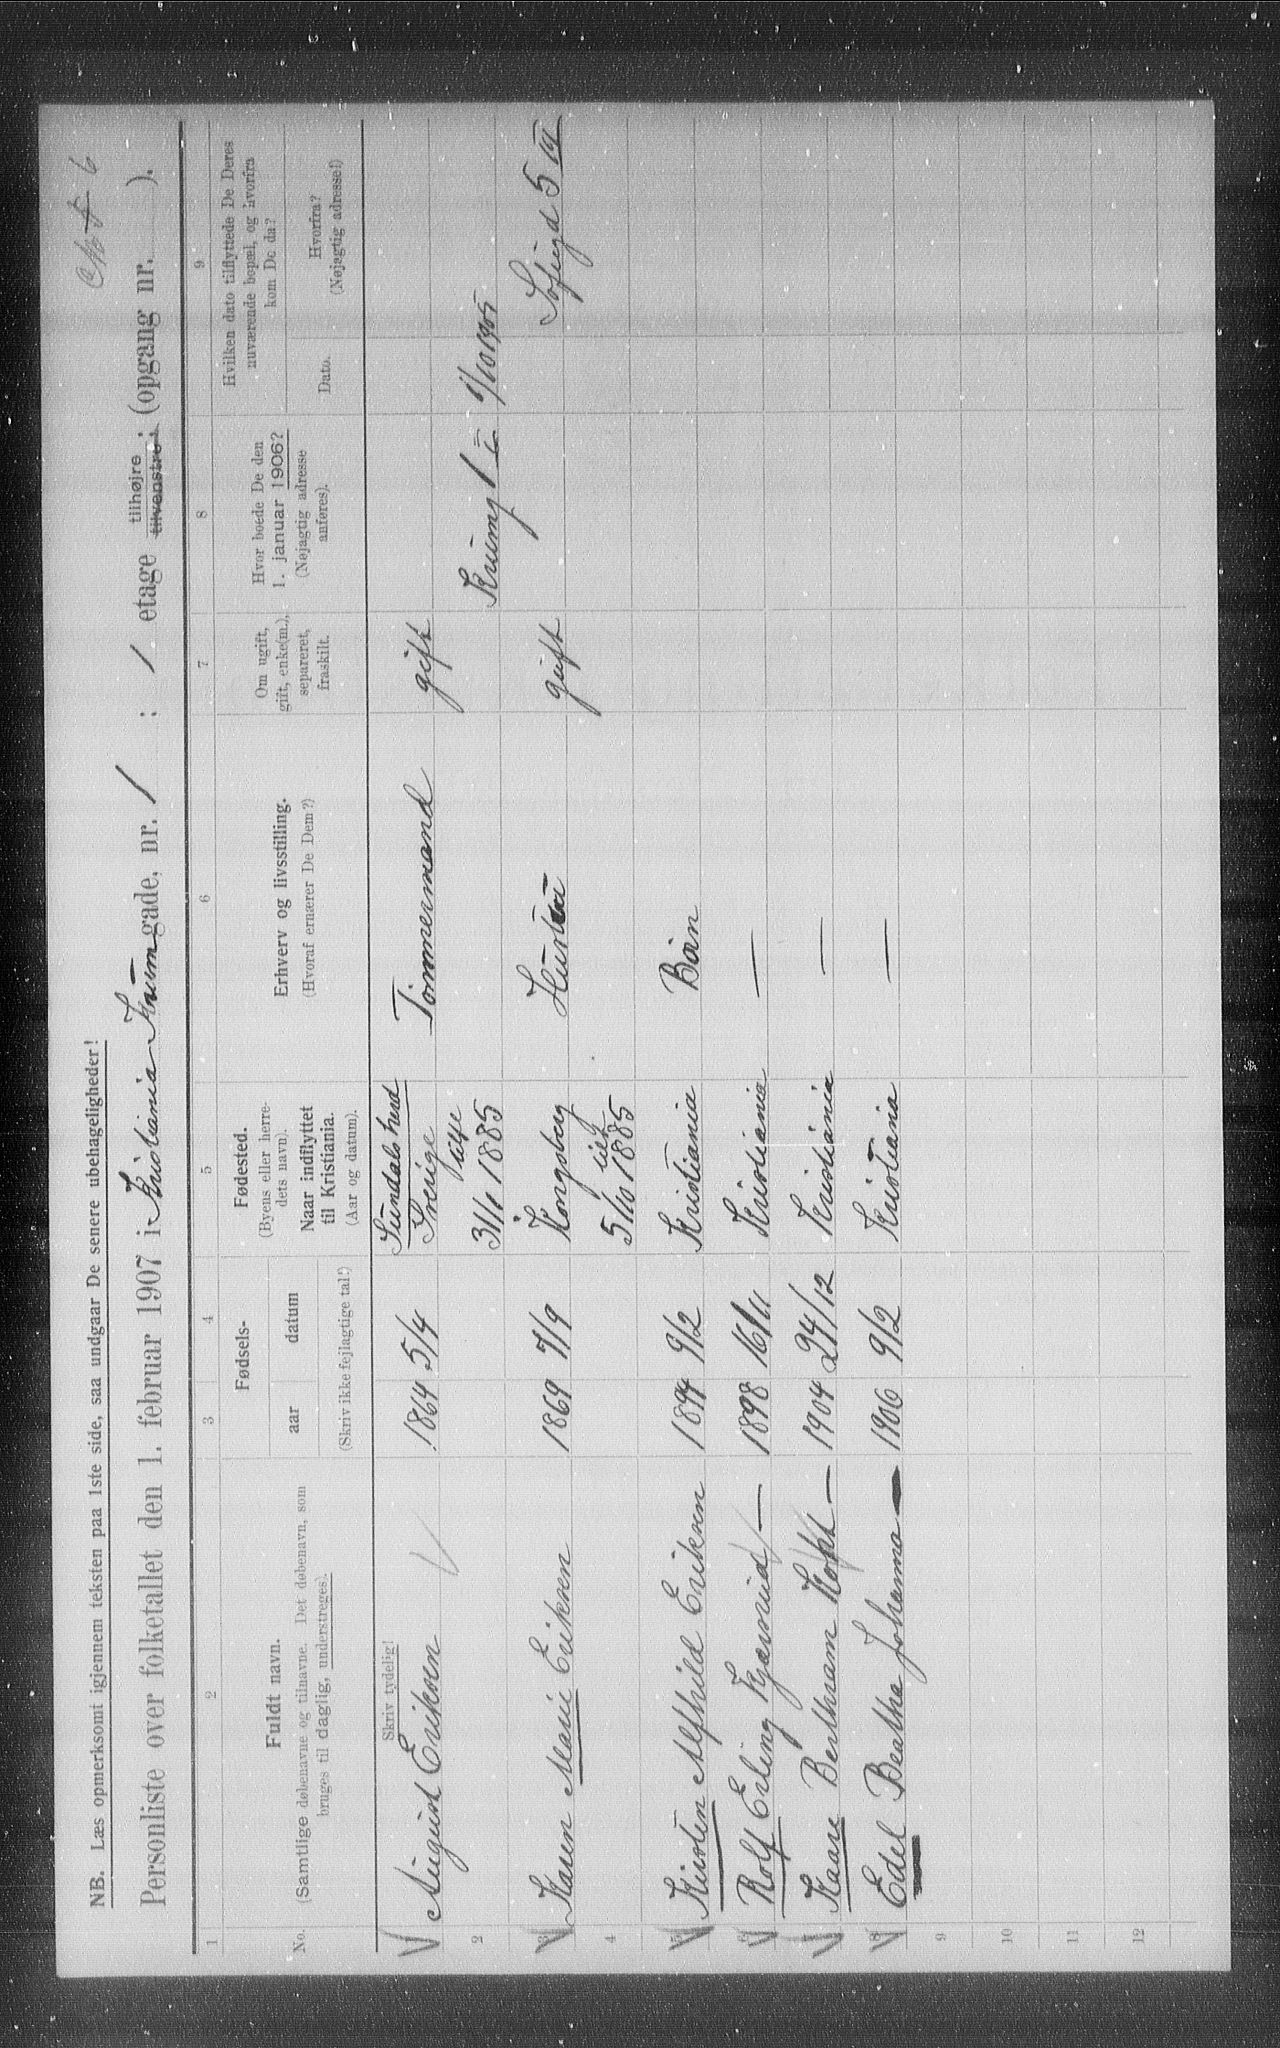 NB. Læs opmerksomt igjennem teksten paa 1ste side, saa undgaar De senere ubehageligheder!
Personliste over folketallet den 1. februar 1907 i Kristiania Krumgade, nr. 1 ; 1 etage tilhøjre ; tilvenstre ; (opgang nr. ).
1 2 3 4 5 6 7 8 9
No.
Fuldt navn.
(Samtlige døbenavne og tilnavne. Det døbenavn, som
bruges til daglig, understreges).
Fødsels-
aar datum
(Skriv ikke fejlagtige tal!)
Fødested.
(Byens eller herre-
dets navn).
Naar indflyttet
til Kristiania.
(Aar og datum).
Erhverv og livsstilling.
(Hvoraf ernærer De Dem?)
Om ugift,
gift, enke(m.),
separeret,
fraskilt.
Hvor boede De den
1. januar 1906?
(Nøjagtig adresse
anføres).
Hvilken dato tilflyttede De Deres
nuværende bopæl, og hvorfra
kom De da?
Dato.
Hvorfra?
(Nøjagtig adresse!)
Skriv tydelig!
Sundals herd
August Eriksen 1864 5/4 Sverige Tømmermand gift
2 31/1 1885 Krumg 1 1/10 1905
3 Karen Marie Eriksen 1869 7/9 Kongsberg Hustru gift Sofiegd 5
4 5/10 1885
5 Kirsten Alfhild Eriksen 1894 9/2 Kristiania Barn
6 Rolf Erling Kjærnud — 1898 16/11 Kristiania —
7 Kaare Berthram — 1904 24/12 Kristiania —
8 Edel Beatha Johanna — 1906 9/2 Kristiania —
9
10
11
12